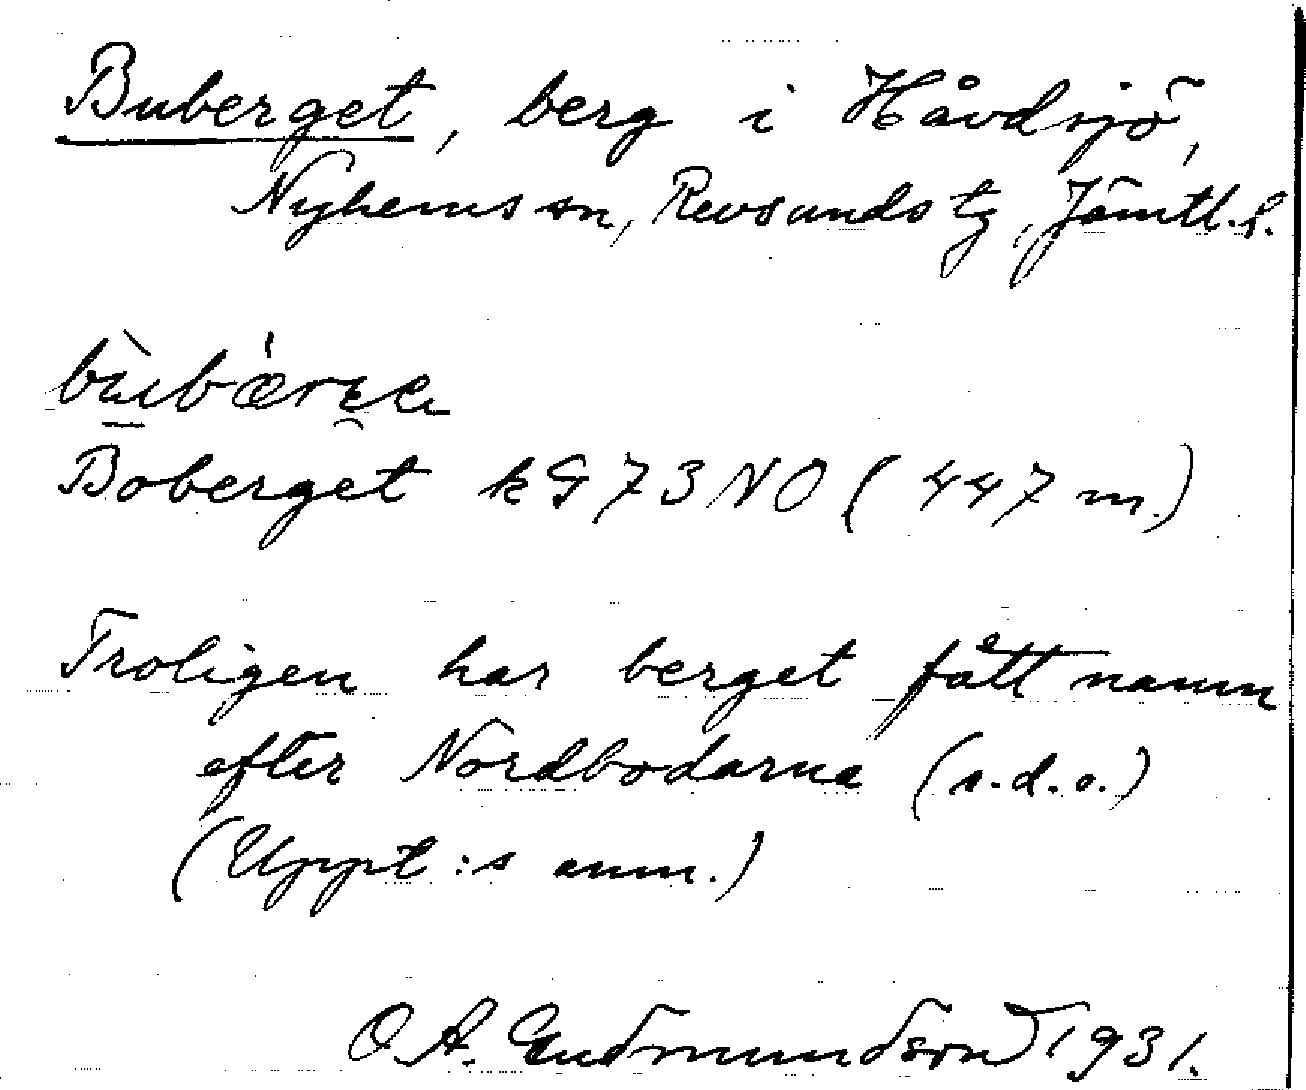 Buberget, berg i Håvdsjö,
Nyhems sn, Revsunds tg, Jämtl. l.
Boberget kG 73 NO (447 m.)
Troligen har berget fått namn
efter Nordbodarna (s.d.o.)
(Uppt:s anm.)
O. A. Gudmundson 1931.